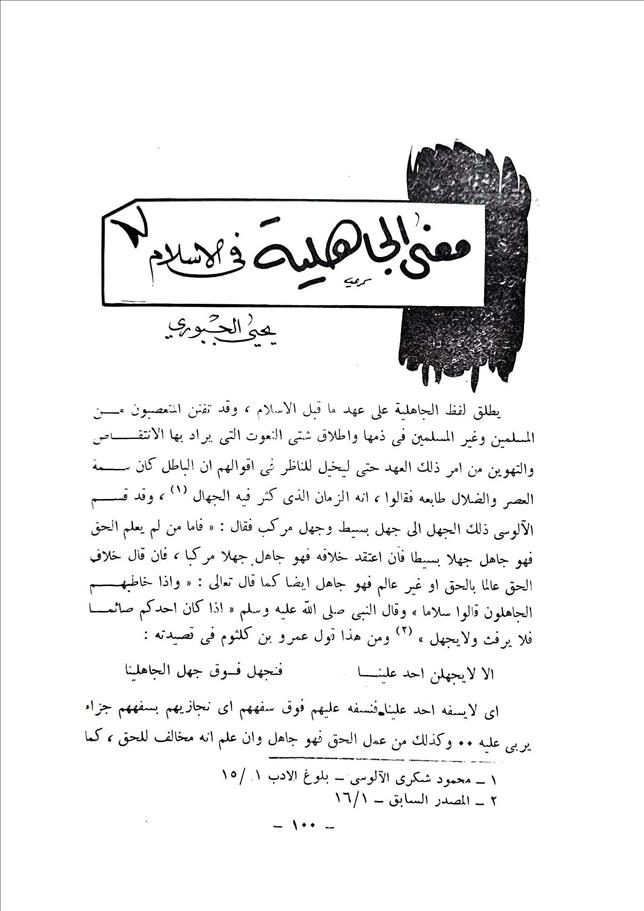 معنى الجاهلية في الاسلام
يحيى الجبوري
يطلق لفظ الجاهلية على عهد ما قبل الاسلام ، وقد تفنن المتعصبون مـن
المسلمين وغير المسلمين فى ذمها واطلاق شتى النعوت التى يراد بها الانتقـــاص
والتهوين من امر ذلك العهد حتى ليخيل للناظر فى اقوالهم ان الباطل كان سـمة
العصر والضلال طابعه فقالوا ، انه الزمان الذى كثر فيه الجهال (١) ، وقد قسـم
الآلوسى ذلك الجهل الى جهل بسيط وجهل مركب فقال : « فاما من لم يعلم الحق
فهو جاهل جهلا بسيطا فأن اعتقد خلافه فهو جاهل جهلا مركبا ، فان قال خلاف
الحق عالما بالحق او غير عالم فهو جاهل ايضا كما قال تعالى : « واذا خاطبهـم
الجاهلون قالوا سلاما » وقال النبي صلى الله عليه وسلم « اذا كان احدكم صائمـا
فلا يرفث ولايجهل » (٢) ومن هذا قول عمرو بن كلثوم فى قصيدته :
الا لايجهلن احد علينـــا فنجهل فـوق جهل الجاهلينا
اى لايسفه احد علينا فنسفه عليهم فوق سفههم اى نجازيهم بسفههم جزاء
يربى عليه ٠٠ وكذلك من عمل الحق فهو جاهل وان علم انه مخالف للحق ، كما
١ ـ محمود شكرى الآلوسى ـ بلوغ الادب ١/١٥
٢ ـ المصدر السابق ـ ١٦/١
ـ ١٠٠ ـ